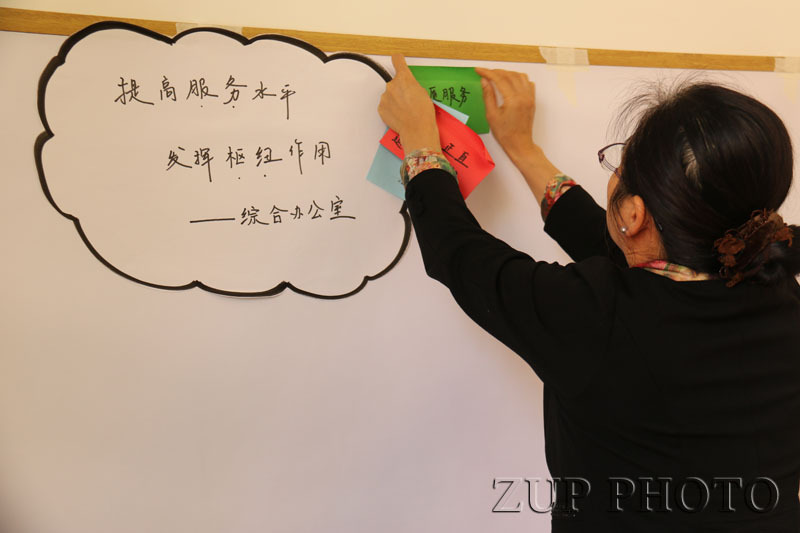 提高服务水平
发挥枢纽作用
——综合办公室
服务
ZUP PHOTO